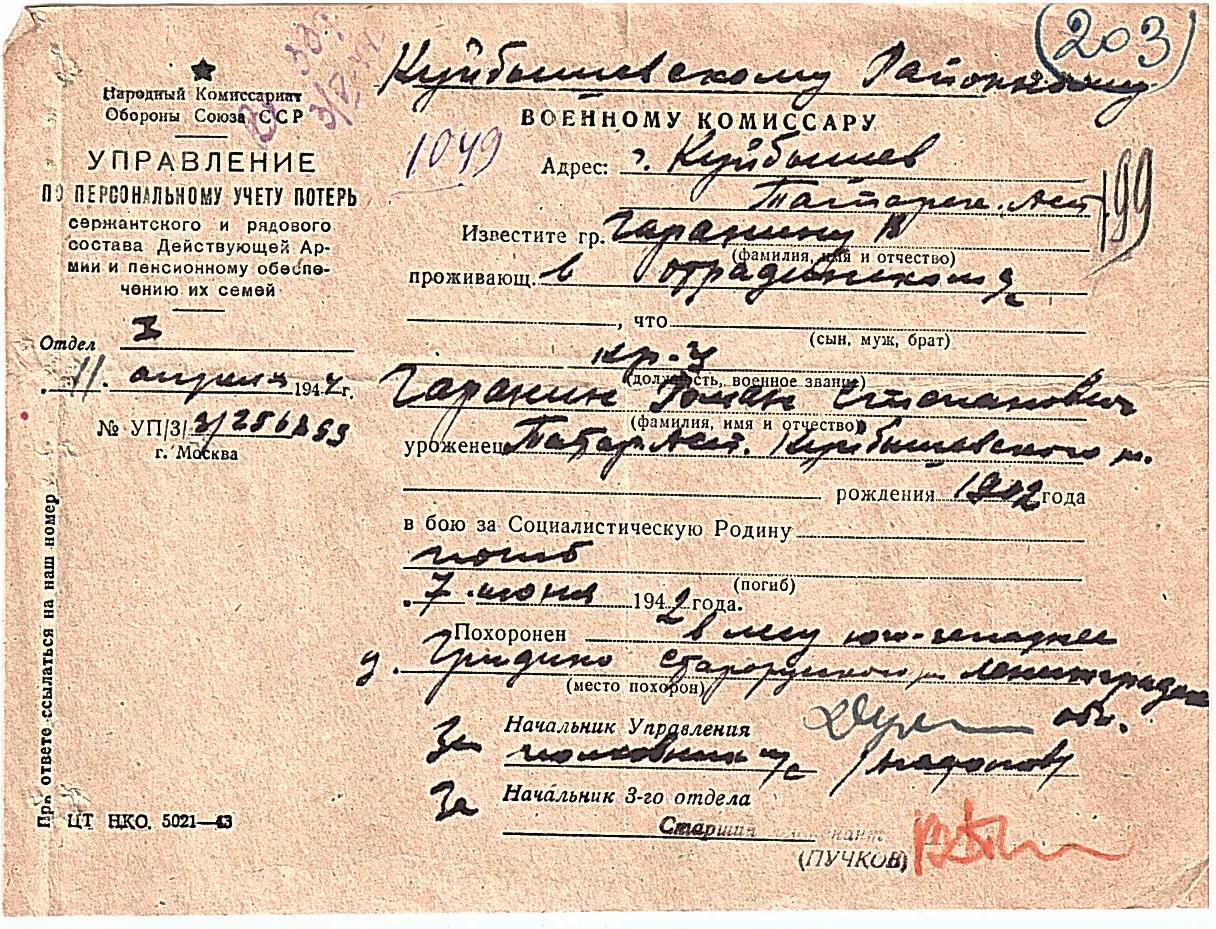 (203)
Куйбышевскому Районному
ВОЕННОМУ КОМИССАРУ
★
Народный Комиссариат
Обороны Союза ССР
УПРАВЛЕНИЕ
ПО ПЕРСОНАЛЬНОМУ УЧЕТУ ПОТЕРЬ
сержантского и рядового
состава Действующей Ар-
мии и пенсионному обеспе-
чению их семей
Отдел 3
11. апреля 1944 г.
№ УП/3/
г. Москва
При ответе ссылаться на наш номер
ЦТ НКО. 5021—43
1049
199
Адрес: г. Куйбышев
Татарск. Аст
Известите гр. Гаранину В
(фамилия, имя и отчество)
проживающ. в Отрадинском с/с
, что
(сын, муж, брат)
кр-ц
(должность, военное звание)
Гаранин Роман Степанович
(фамилия, имя и отчество)
уроженец Татар. Аст. Куйбышевского р.
рождения 1902 года
в бою за Социалистическую Родину
погиб
(погиб)
7 июня 1942 года.
Похоронен в лесу юго-западнее
д. Гридино Старорусского р. Ленинградской
(место похорон)
обл.
Начальник Управления
За полковник
За Начальник 3-го отдела
Старший лейтенант
(ПУЧКОВ)